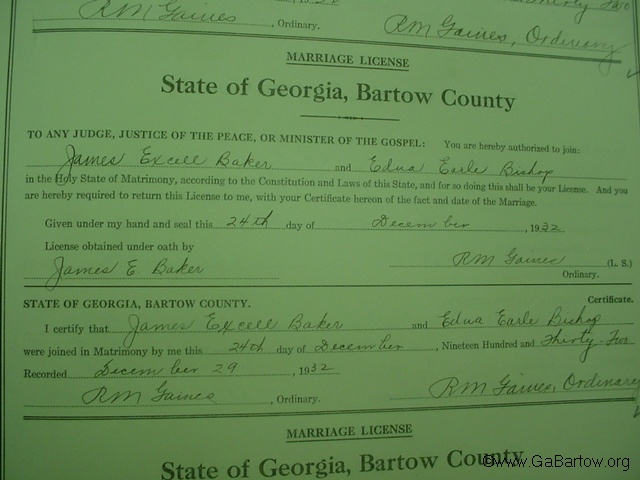 RM Gaines, Ordinary. RM Gaines, Ordinary
MARRIAGE LICENSE
State of Georgia, Bartow County
TO ANY JUDGE, JUSTICE OF THE PEACE, OR MINISTER OF THE GOSPEL: You are hereby authorized to join:
James Excell Baker and Edna Earle Bishop
in the Holy State of Matrimony, according to the Constitution and Laws of this State, and for so doing this shall be your License. And you
are hereby required to return this License to me, with your Certificate hereon of the fact and date of the Marriage.
Given under my hand and seal this 24th day of December, 1932
License obtained under oath by RM Gaines (L. S.)
James E. Baker Ordinary.
STATE OF GEORGIA, BARTOW COUNTY. Certificate.
I certify that James Excell Baker and Edna Earle Bishop
were joined in Matrimony by me this 24th day of December, Nineteen Hundred and Thirty Two
Recorded December 29, 1932
RM Gaines, Ordinary. RM Gaines, Ordinary
MARRIAGE LICENSE
State of Georgia, Bartow County
©www.GaBartow.org